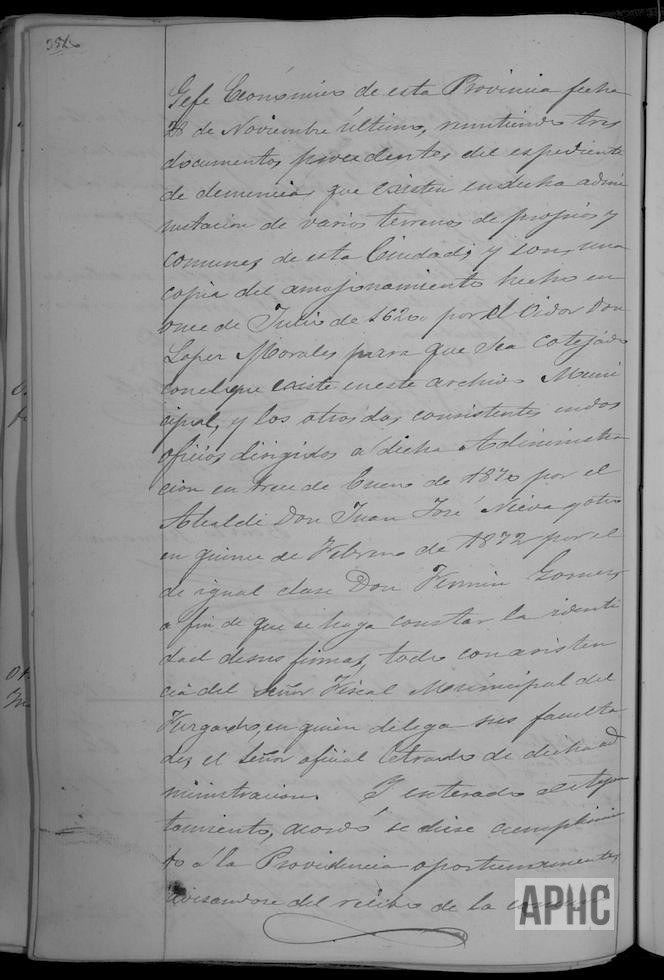 Gefe Económico de esta Provincia fecha
28 de Noviembre último, remitiendo tres
documentos procedentes del espediente
de demencia que existen en dicha admi
nistracion de varios terrenos de propios y
comunes de esta Ciudad, y son, una
copia del amojonamiento hecho en
once de Julio de 1620 por el Oidor Don
Lopez Morales para que sea cotejado
con el que existe en este archivo Muni
cipal, y los otros dos consistentes en dos
oficios dirigidos a dicha Administra
cion en trece de Enero de 1870 por el
Alcalde Don Juan José Nieva y otro
en quince de Febrero de 1872 por el
de igual clase Don Fermin Gomez
a fin de que se haga constar la identi
dad de sus firmas, todo con asisten
cia del Señor Fiscal Municipal del
Juzgado, en quien delega sus faculta
des el Señor oficial letrado de dicha ad
ministracion. Y enterado el Ayun
tamiento, acordó se diese cumplimien
to a la Providencia oportunamente,
avisandose del recibo de la
APHC